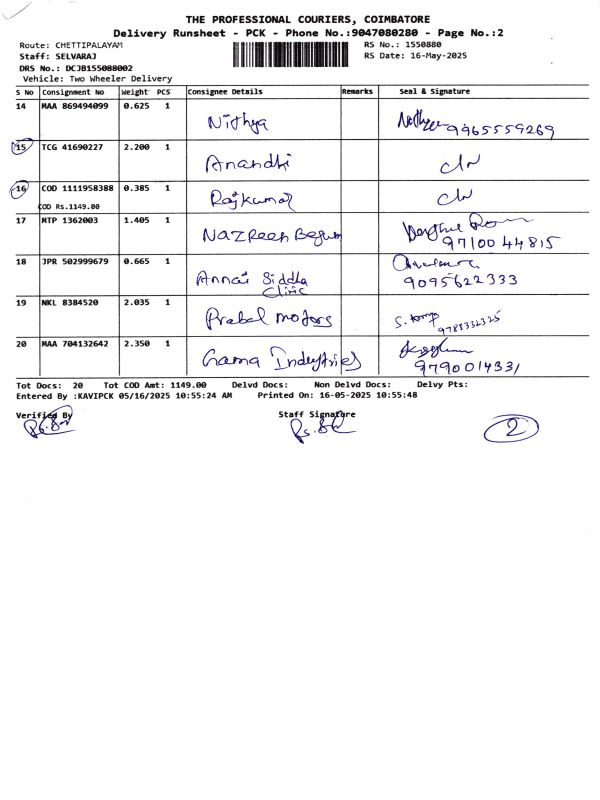 THE PROFESSIONAL COURIERS, COIMBATORE
Delivery Runsheet - PCK - Phone No.:9047080280 - Page No.:2
Route: CHETTIPALAYAM RS No.: 1550880
Staff: SELVARAJ RS Date: 16-May-2025
DRS No.: DCJB155088002
Vehicle: Two Wheeler Delivery
S No Consignment No Weight PCS Consignee Details Remarks Seal & Signature
14 MAA 869494099 0.625 1 Nithya 9965559269
15 TCG 41690227 2.200 1 Anandhi
16 COD 1111958388 0.385 1 Rajkumar
COD Rs.1149.00
17 MTP 1362003 1.405 1 Nazreen Begum
9710044815
18 JPR 502999679 0.665 1 Annai Siddha
Clinic 9095622333
19 NKL 8384520 2.035 1 Prabal motors
9788332325
20 MAA 704132642 2.350 1 Gama Industries
9790014331
Tot Docs: 20 Tot COD Amt: 1149.00 Delvd Docs: Non Delvd Docs: Delvy Pts:
Entered By :KAVIPCK 05/16/2025 10:55:24 AM Printed On: 16-05-2025 10:55:48
Verified By Staff Signature
2